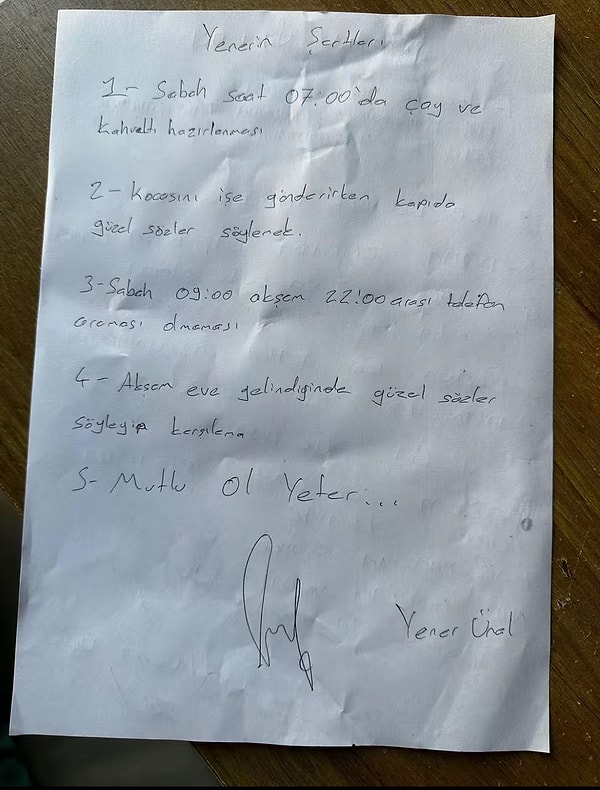 Yenerin Şartları
1- Sabah saat 07:00'da çay ve
kahvaltı hazırlanması
2- Kocasını işe gönderirken kapıda
güzel sözler söylemek.
3- Sabah 09:00 akşam 22:00 arası telefon
araması olmaması
4- Akşam eve gelindiğinde güzel sözler
söyleyip karşılama
5- Mutlu Ol Yeter...
Yener Ünal